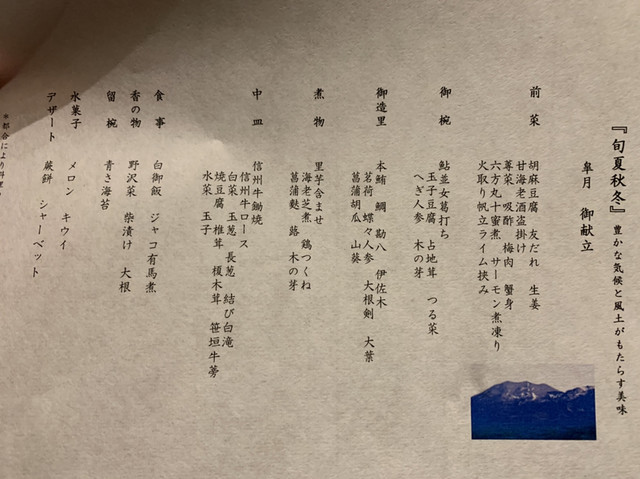 『旬夏秋冬』 豊かな気候と風土がもたらす美味
皐月 御献立
前菜
胡麻豆腐 友だれ 生姜
甘海老酒盗掛け
蓴菜 吸酢 梅肉 蟹身
六方丸十蜜煮 サーモン煮凍り
火取り帆立ライム挟み
御椀
鮎並女葛打ち
玉子豆腐 占地茸 つる菜
へぎ人参 木の芽
御造里
本鮪 鯛 勘八 伊佐木
茗荷 蝶々人参 大根剣 大葉
菖蒲胡瓜 山葵
煮物
里芋含ませ
海老芝煮 鶏つくね
菖蒲麩 蕗 木の芽
中皿
信州牛鋤焼
信州牛ロース
白菜 玉葱 長葱 結び白滝
焼豆腐 椎茸 榎木茸 笹垣牛蒡
水菜 玉子
食事
白御飯 ジャコ有馬煮
香の物
野沢菜 柴漬け 大根
留椀
青さ海苔
水菓子
メロン キウイ
デザート
蕨餅 シャーベット
※都合により料理